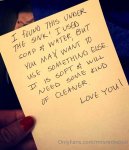 I FOUND THIS UNDER
THE SINK! I USED
SOAP & WATER BUT
YOU MAY WANT TO
USE SOMETHING ELSE.
IT IS SOFT & WILL
NEED SOME KIND
OF CLEANER.
LOVE YOU!